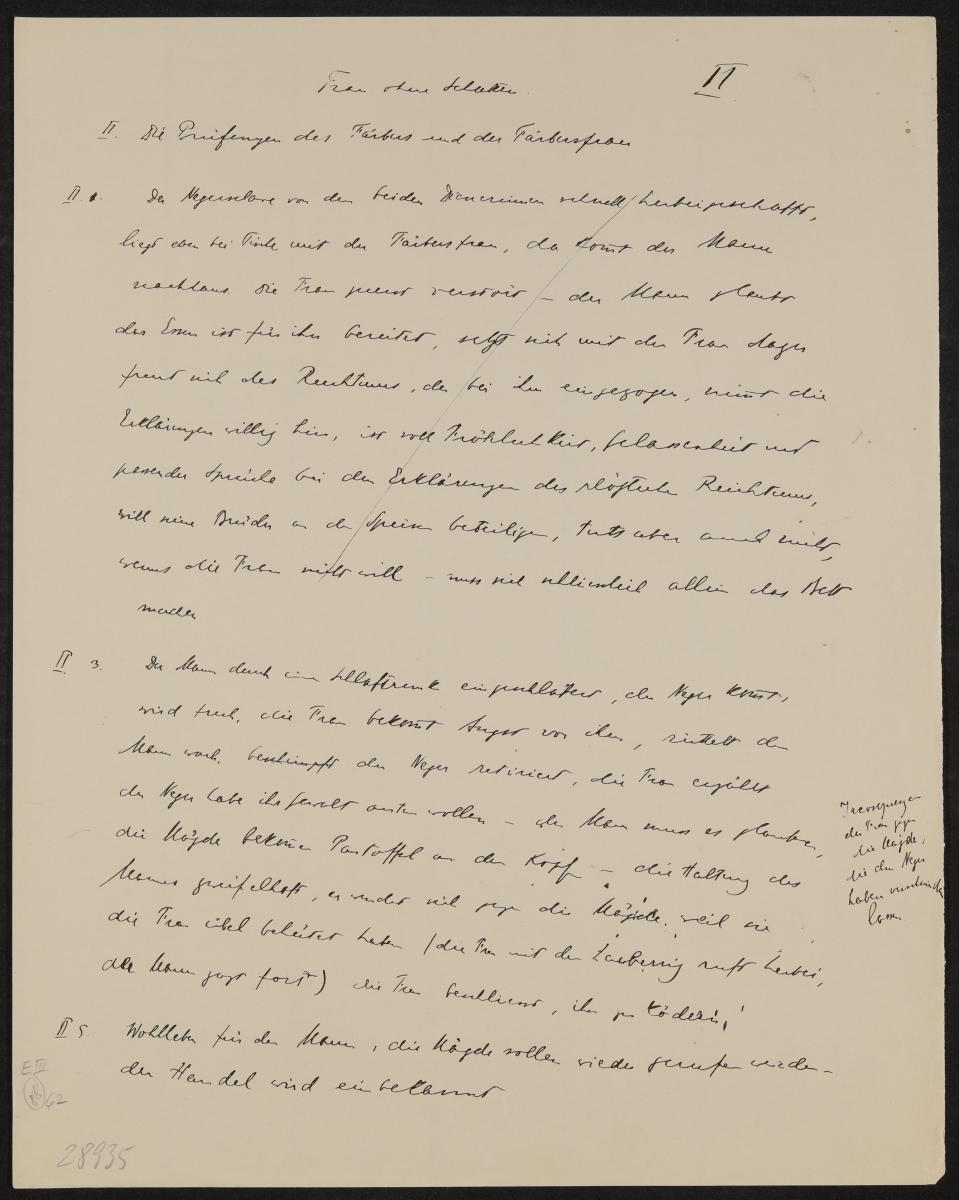 Frau ohne Schatten.
II
II. Die Prüfungen des Färbers und der Färbersfrau
II. 1. Der Negersclave von den beiden Dienerinnen schnell herbeigeschafft,
liegt eben bei Tische mit der Färbersfrau, da kom̅t der Mann
nachhaus. Die Frau zuerst verstört – der Mann glaubt
das Essen ist für ihn bereitet, setzt sich mit der Frau dazu
freut sich des Reichtums, der bei ihm eingezogen, nim̅t die
Erklärungen willig hin, ist voll Fröhlichkeit, Gelassenheit und
passender Sprüche bei den Erklärungen des plötzlichen Reichtums,
will seine Brüder an den Speisen beteiligen, tuts aber auch nicht,
wenns die Frau nicht will – muss sich schliesslich allein das Bett
machen
II 3. Der Mann durch einen Schlaftrunk eingeschläfert, der Neger kom̅t,
wird frech, die Frau bekom̅t Angst vor ihm, rüttelt den
Mann wach, beschimpft der Neger retiriert, die Frau erzählt
der Neger habe ihr Gewalt antun wollen – der Mann muss es glauben,
die Mägde bekom̅en Pantoffel an den Kopf – die Haltung des
Mannes zweifelhaft, er wendet sich gegen die Mägde, weil sie
die Frau übel behütet haben (die Frau mit den Zauberring ruft herbei,
der Mann jagt fort) die Frau beschliesst, ihn zu ködern!
der Frau gegen
die Mägde,
die den Neger
haben
lassen
II 5. Wohlleben für den Mann, die Mägde sollen wieder gerufen werden –
der Handel wird einbekannt
E III
62
28935